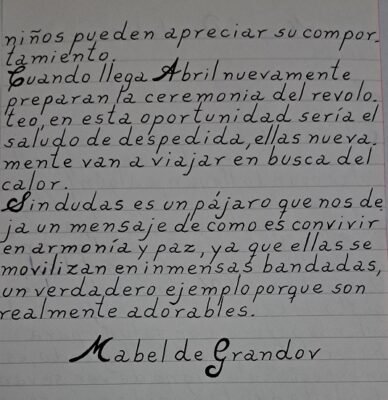 niños pueden apreciar su compor-
tamiento.
Cuando llega Abril nuevamente
preparan la ceremonia del revolo-
teo, en esta oportunidad sería el
saludo de despedida, ellas nueva-
mente van a viajar en busca del
calor.
Sin dudas es un pájaro que nos de
ja un mensaje de como es convivir
en armonía y paz, ya que ellas se
movilizan en inmensas bandadas,
un verdadero ejemplo porque son
realmente adorables.
Mabel de Grandov